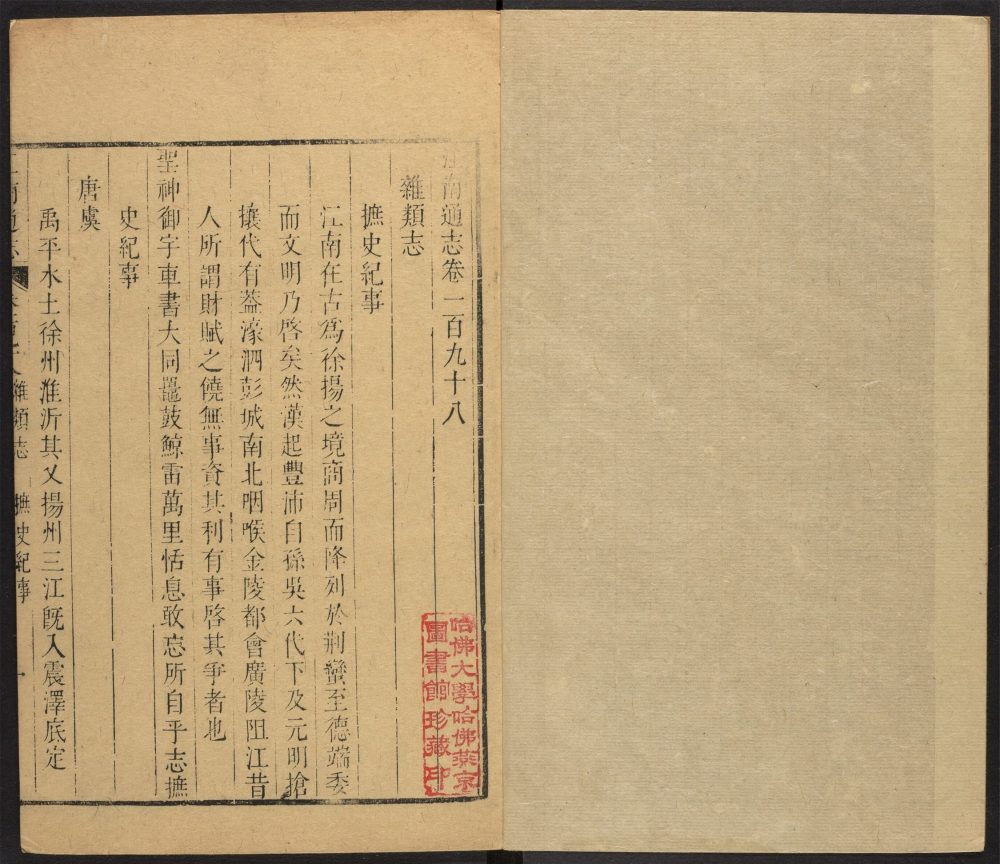 江南通志卷一百九十八
雜類志
摭史紀事
江南在古爲徐揚之境商周而降列於荆蠻至德端委
而文明乃啓矣然漢起豐沛自孫吳六代下及元明搶
攘代有葢濠泗彭城南北咽喉金陵都會廣陵阻江昔
人所謂財賦之饒無事資其利有事啓其爭者也
聖神御宇車書大同鼉鼓鯨雷萬里恬息敢忘所自乎志摭
史紀事
唐虞
禹平水土徐州淮沂其乂揚州三江旣入震澤底定
江南通志
雜類志 摭史紀事 一
哈佛大學哈佛燕京
圖書館珍藏印